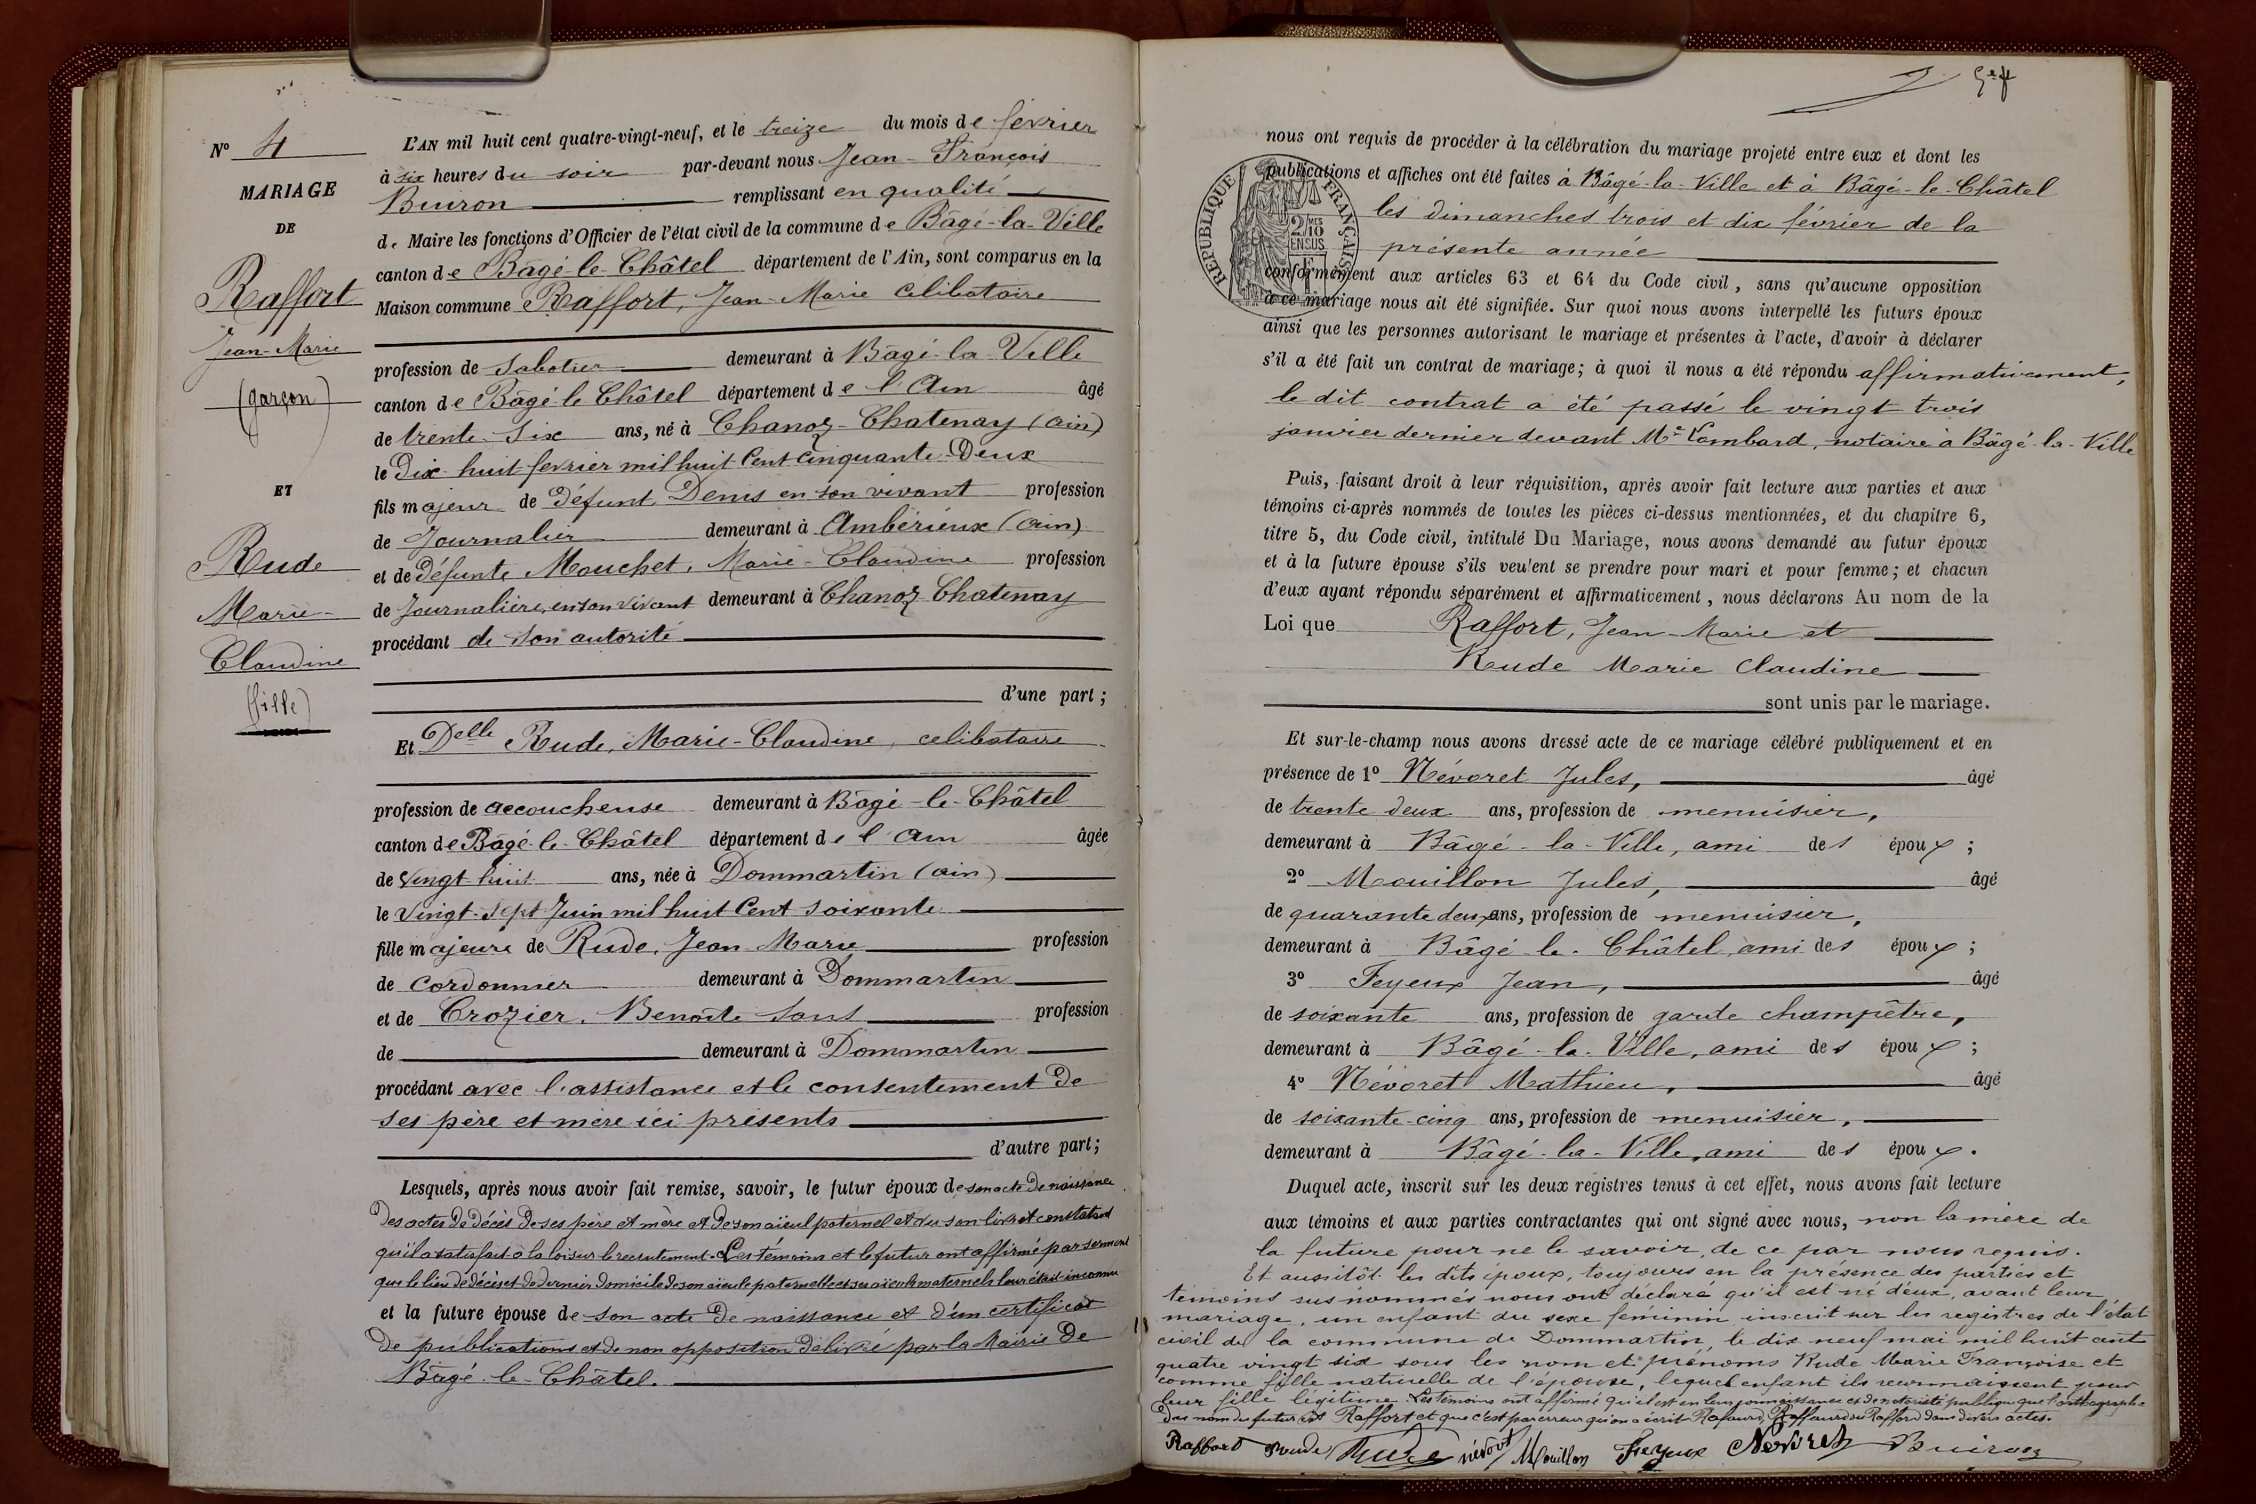 Nº 4
MARIAGE
DE
Raffort
Jean-Marie
(garçon)
ET
Rude
Marie-
Claudine
(fille)
L'AN mil huit cent quatre-vingt-neuf, et le treize du mois de février
à six heures du soir par-devant nous Jean-François
Buiron remplissant en qualité
de Maire les fonctions d'Officier de l'état civil de la commune de Bâgé-la-Ville
canton de Bâgé-le-Châtel département de l'Ain, sont comparus en la
Maison commune Raffort, Jean-Marie celibataire
profession de sabotier demeurant à Bâgé-la-Ville
canton de Bâgé-le Châtel département de l'Ain âgé
de trente-six ans, né à Chanoz-Chatenay (ain)
le Dix-huit fevrier mil huit Cent cinquante-Deux
fils majeur de Défunt Denis en son vivant profession
de Journalier demeurant à Ambérieux (ain)
et de Défunte Mouchet, Marie-Claudine profession
de Journalière, en son vivant demeurant à Chanoz-Chatenay
procédant de son autorité
d'une part ;
Et Delle Rude, Marie-Claudine, celibataire
profession de accoucheuse demeurant à Bâgé-le-Châtel
canton de Bâgé-le-Châtel département de l'Ain âgée
de vingt-huit ans, née à Dommartin (ain)
le vingt-sept Juin mil huit Cent soixante
fille majeure de Rude, Jean-Marie profession
de cordonnier demeurant à Dommartin
et de Crozier, Benoîte sans profession
de demeurant à Dommartin
procédant avec l'assistance et le consentement de
ses père et mère ici présents
d'autre part;
Lesquels, après nous avoir fait remise, savoir, le futur époux de son acte de naissance
Des actes de décès de ses père et mère et de son aïeul paternel et vu son livret constatant
qu'il a satisfait à la loi sur le recrutement. Les témoins et le futur ont affirmé par serment
que le lieu de décès et de dernier domicile de son aïeule paternelle et ses aïeuls maternels leur était inconnu
et la future épouse de son acte de naissance et d'un certificat
de publications et de non opposition délivré par la Mairie de
Bâgé-le-Châtel.
nous ont requis de procéder à la célébration du mariage projeté entre eux et dont les
publications et affiches ont été faites à Bâgé-la-Ville et à Bâgé-le-Châtel
les dimanches trois et dix février de la
présente année
RÉPUBLIQUE FRANÇAISE
2/10
EN SUS
conformément aux articles 63 et 64 du Code civil, sans qu'aucune opposition
à ce mariage nous ait été signifiée. Sur quoi nous avons interpellé les futurs époux
ainsi que les personnes autorisant le mariage et présentes à l'acte, d'avoir à déclarer
s'il a été fait un contrat de mariage; à quoi il nous a été répondu affirmativement,
le dit contrat a été passé le vingt trois
janvier dernier devant Me Lombard, notaire à Bâgé-la-Ville
Puis, faisant droit à leur réquisition, après avoir fait lecture aux parties et aux
témoins ci-après nommés de toutes les pièces ci-dessus mentionnées, et du chapitre 6,
titre 5, du Code civil, intitulé Du Mariage, nous avons demandé au futur époux
et à la future épouse s'ils veulent se prendre pour mari et pour femme; et chacun
d'eux ayant répondu séparément et affirmativement, nous déclarons Au nom de la
Loi que Raffort, Jean-Marie et
Rude Marie Claudine
sont unis par le mariage.
Et sur-le-champ nous avons dressé acte de ce mariage célébré publiquement et en
présence de 1º Névoret Jules, âgé
de trente deux ans, profession de menuisier,
demeurant à Bâgé-la-Ville, ami des époux ;
2º Mouillon Jules, âgé
de quarante deux ans, profession de menuisier,
demeurant à Bâgé-le-Châtel, ami des époux ;
3º Feyeux Jean, âgé
de soixante ans, profession de garde champêtre,
demeurant à Bâgé-la-Ville, ami des époux ;
4º Névoret Mathieu, âgé
de soixante-cinq ans, profession de menuisier,
demeurant à Bâgé-la-Ville, ami des époux.
Duquel acte, inscrit sur les deux registres tenus à cet effet, nous avons fait lecture
aux témoins et aux parties contractantes qui ont signé avec nous, non la mère de
la future pour ne le savoir, de ce par nous requis.
Et aussitôt les dits époux, toujours en la présence des parties et
témoins sus nommés nous ont déclaré qu'il est né d'eux, avant leur
mariage, un enfant du sexe féminin inscrit sur les registres de l'état
civil de la commune de Dommartin, le dix neuf mai mil huit cent
quatre vingt six sous les nom et prénoms Rude Marie Françoise et
comme fille naturelle de l'épouse, lequel enfant ils reconnaissent pour
leur fille légitime. Les témoins ont affirmé qu'il est en leur connaissance et de notoriété publique que l'orthographe
du nom du futur est Raffort et que c'est par erreur qu'on a écrit Rafaurd, Raffaurd ou Rafford dans divers actes.
Raffort Rude Rude névoret Mouillon Feyeux Névoret Buiron